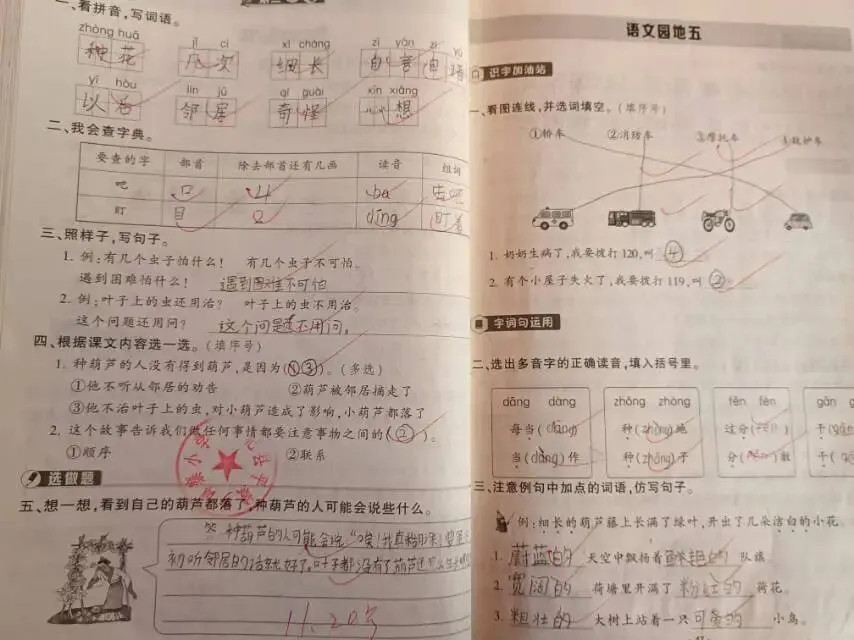 一、看拼音，写词语。
zhòng huā jǐ cì xì cháng zì yán zì yǔ
种花 几次 细长 自言自语
yǐ hòu lín jū qí guài xīn xiǎng
以后 邻居 奇怪 心想
二、我会查字典。
要查的字 部首 除去部首还有几画 读音 组词
吧 口 4 ba
盯 目 2 dīng 盯着
三、照样子，写句子。
1. 例：有几个虫子怕什么！ 有几个虫子不可怕。
遇到困难怕什么！ 遇到困难不可怕
2. 例：叶子上的虫还用治？ 叶子上的虫不用治。
这个问题还用问？ 这个问题不用问。
四、根据课文内容选一选。（填序号）
1. 种葫芦的人没有得到葫芦，是因为（①③）。（多选）
①他不听从邻居的劝告 ②葫芦被邻居摘走了
③他不治叶子上的虫，对小葫芦造成了影响，小葫芦都落了
2. 这个故事告诉我们做任何事情都要注意事物之间的（②）。
①顺序 ②联系
选做题
五、想一想，看到自己的葫芦都落了，种葫芦的人可能会说些什么。
答 种葫芦的人可能会说“唉！我真
初听邻居的话就好了。叶子都没有了葫芦
11.20号
语文园地五
识字加油站
一、看图连线，并选词填空。（填序号）
①轿车 ②消防车 ③摩托车 ④救护车
1. 奶奶生病了，我要拨打 120，叫（④）
2. 有个小屋子失火了，我要拨打 119，叫（②）
字词句运用
二、选出多音字的正确读音，填入括号里。
dāng dàng zhǒng zhòng fēn fèn gān g
每当（dāng） 种（zhòng）地 过分（fèn） 干（
当（dàng）作 种（zhǒng）子 分（fēn）散 干（
三、注意例句中加点的词语，仿写句子。
例：细长的葫芦藤上长满了绿叶，开出了几朵洁白的小花。
1. 蔚蓝的 天空中飘扬着 鲜艳的 队旗
2. 宽阔的 荷塘里开满了 粉红的 荷花。
3. 粗壮的 大树上站着一只 可爱的 小鸟。